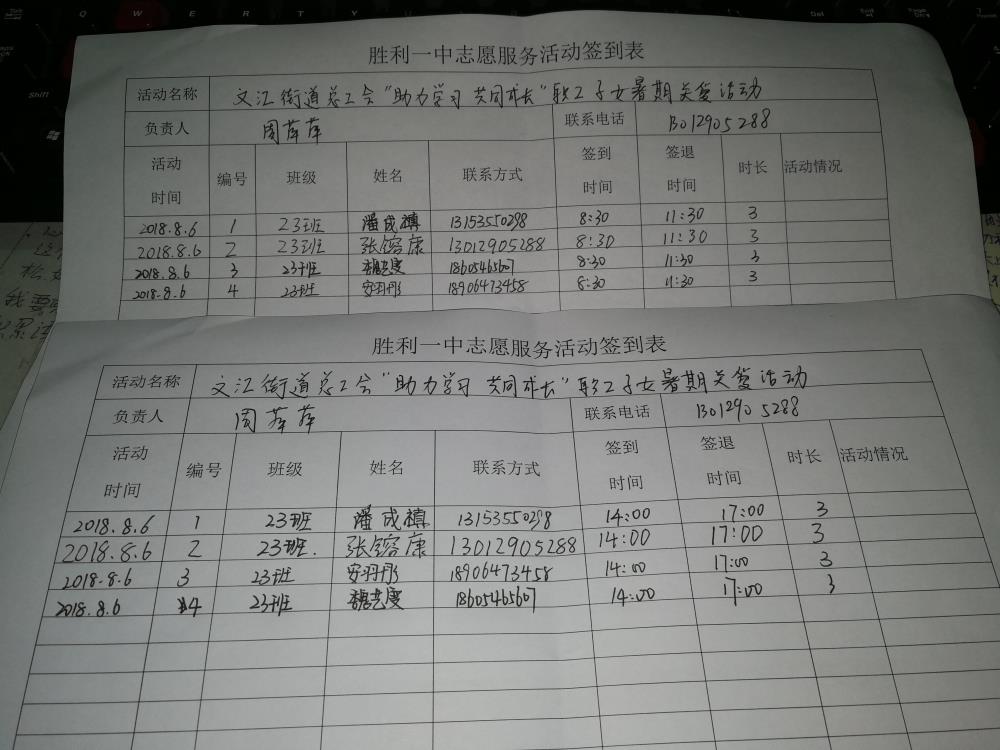 胜利一中志愿服务活动签到表
活动名称 文汇街道总工会“助力学习 共同成长”职工子女暑期关爱活动
负责人 周萍萍 联系电话 13012905288
活动时间 编号 班级 姓名 联系方式 签到时间 签退时间 时长 活动情况
2018.8.6 1 23班 潘成禛 13153550298 8:30 11:30 3
2018.8.6 2 23班 张镕康 13012905288 8:30 11:30 3
2018.8.6 3 23班 18605465607 8:30 11:30 3
2018.8.6 4 23班 安羽彤 18906473458 8:30 11:30 3
胜利一中志愿服务活动签到表
活动名称 文汇街道总工会“助力学习 共同成长”职工子女暑期关爱活动
负责人 周萍萍 联系电话 13012905288
活动时间 编号 班级 姓名 联系方式 签到时间 签退时间 时长 活动情况
2018.8.6 1 23班 潘成禛 13153550298 14:00 17:00 3
2018.8.6 2 23班. 张镕康 13012905288 14:00 17:00 3
2018.8.6 3 23班 安羽彤 18906473458 14:00 17:00 3
2018.8.6 4 23班 18605465607 14:00 17:00 3